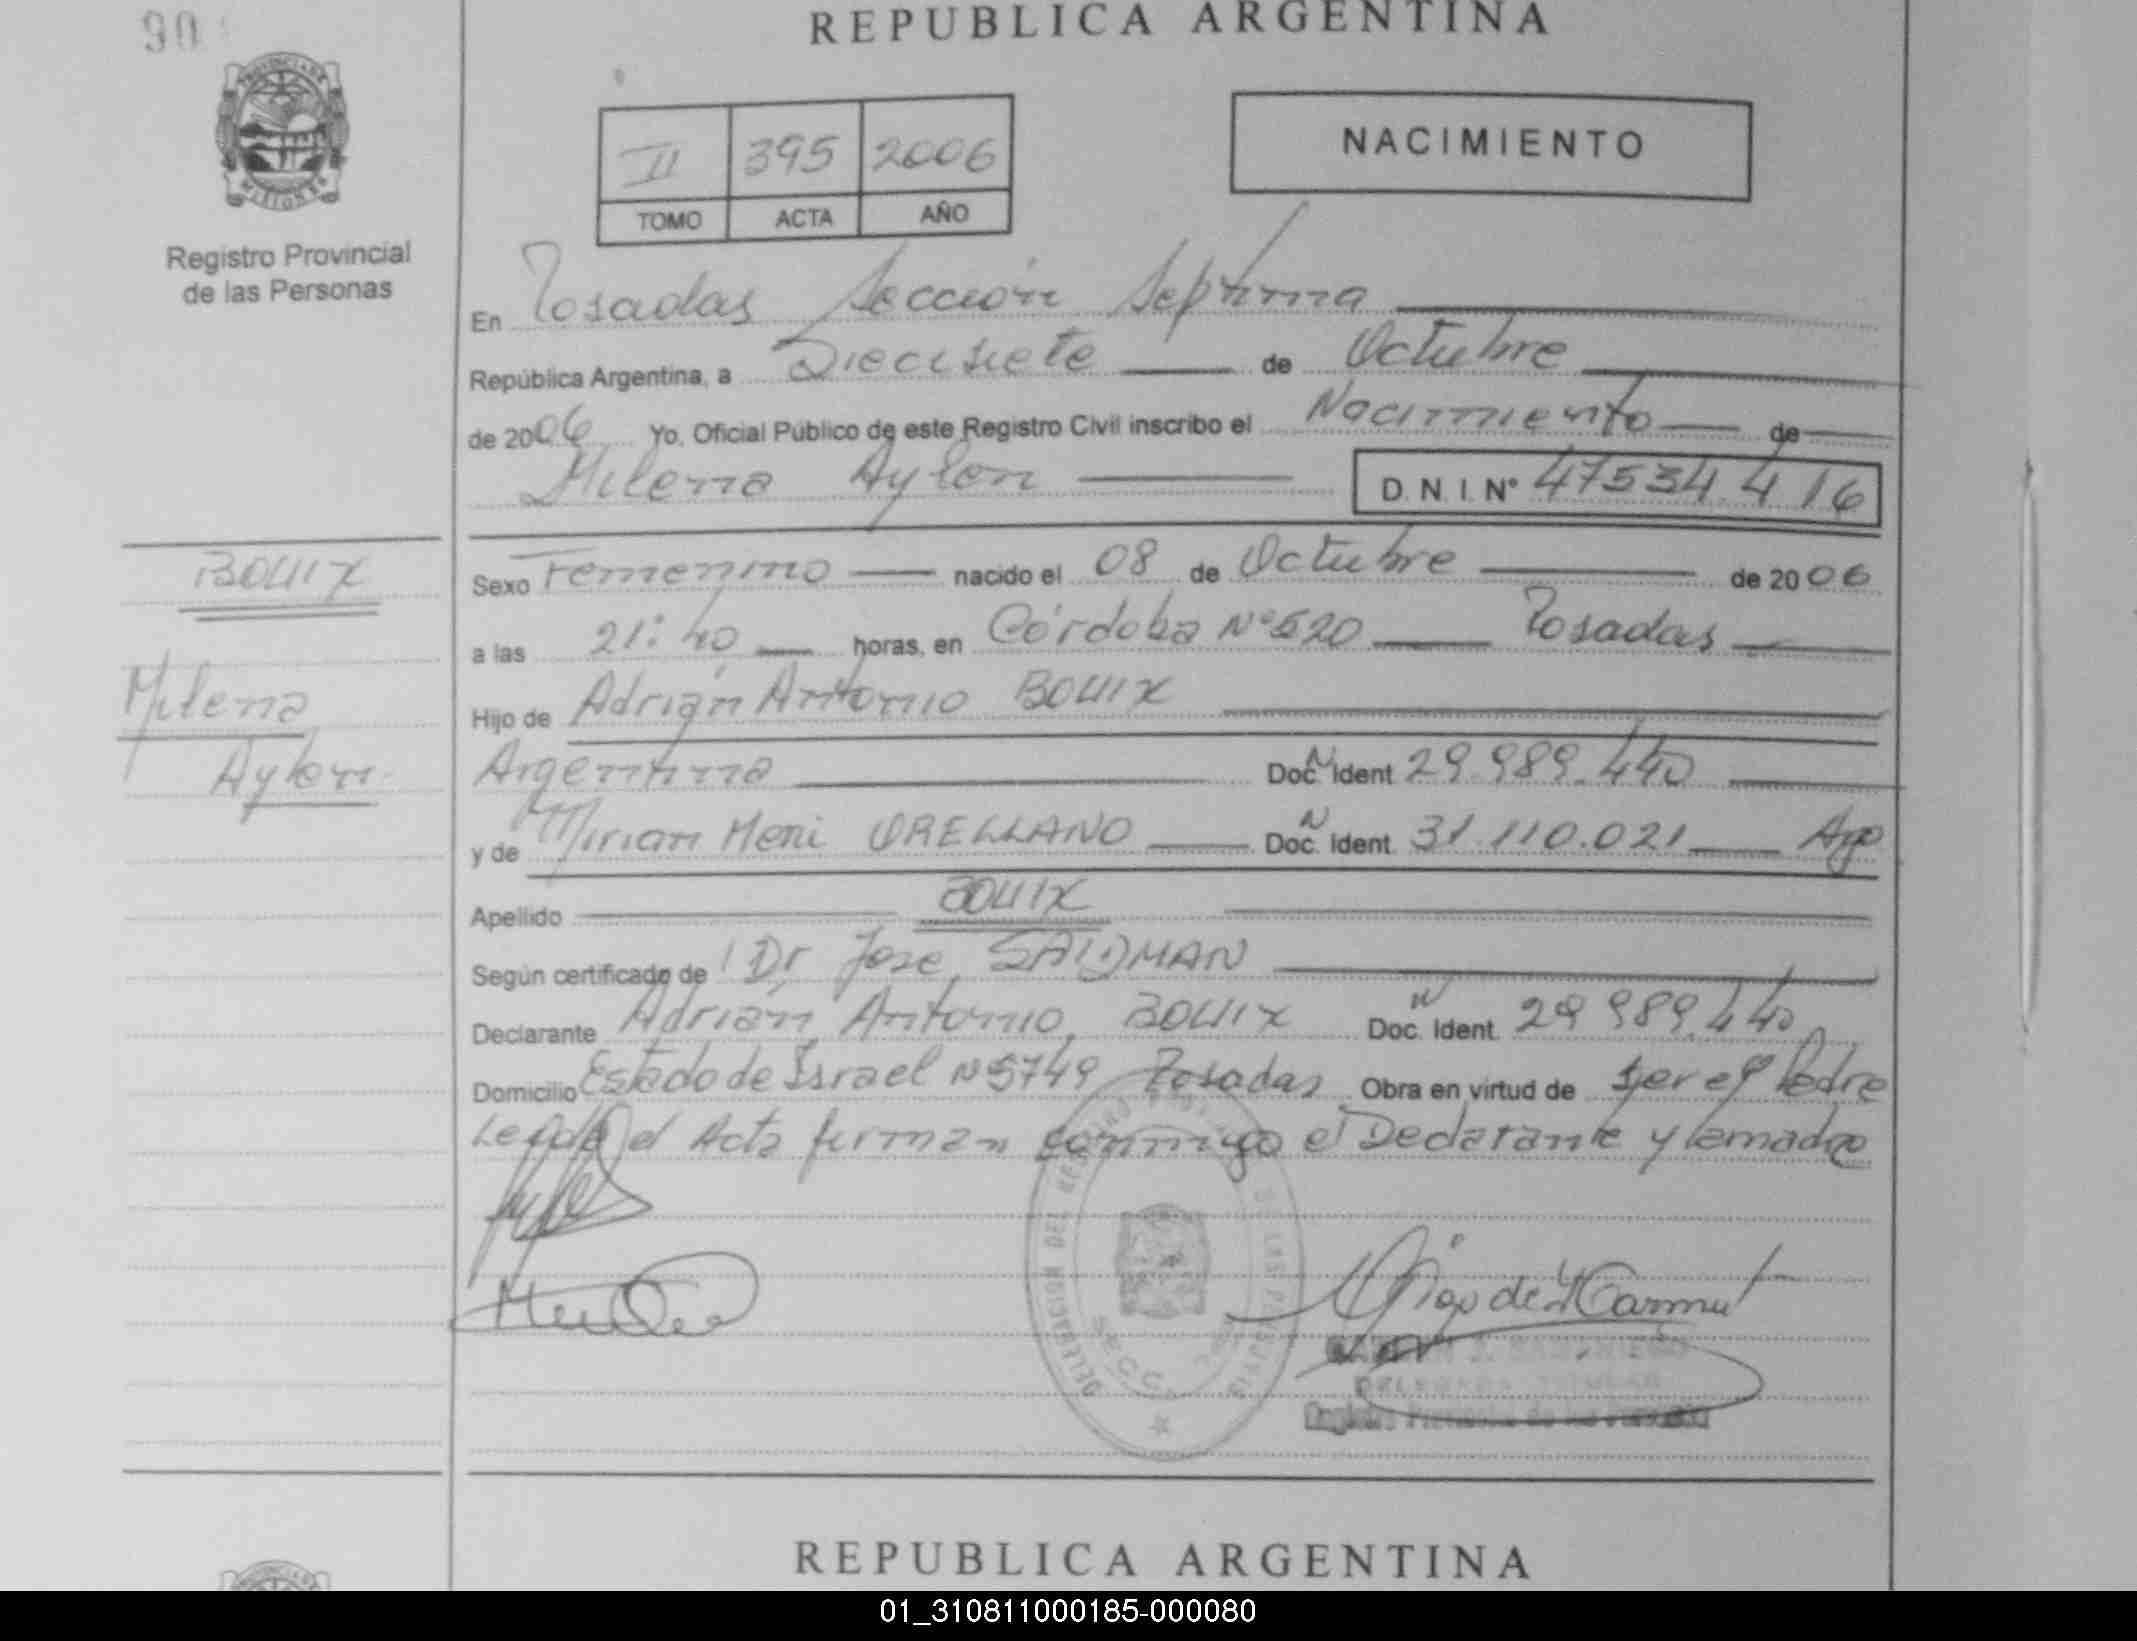 90
REPUBLICA ARGENTINA
PROVINCIA DE
MISIONES
Registro Provincial
de las Personas
II 395 2006
TOMO ACTA AÑO
NACIMIENTO
En Posadas Sección Septima
República Argentina, a Diecisiete de Octubre
de 2006 Yo, Oficial Público de este Registro Civil inscribo el Nacimiento de
Milena Aylen D.N.I. Nº 47534416
BOUIX
Milena
Aylen
Sexo Femenino nacido el 08 de Octubre de 2006
a las 21:40 horas, en Córdoba Nº 520 Posadas
Hijo de Adrián Antonio BOUIX
Argentina Doc. Ident 29.989.440
y de Mirian Meni ORELLANO Doc. Ident. 31.110.021 Arg
Apellido BOUIX
Según certificado de Dr Jose SALOMAN
Declarante Adrián Antonio BOUIX Doc. Ident. 29.989.440
Domicilio Estado de Israel Nº 5749 Posadas Obra en virtud de ser el Padre
Leida el Acta firman conmigo el Declarante y la madre
DELEGACION DEL REGISTRO DE LAS PERSONAS
SECC.
REPUBLICA ARGENTINA
01_310811000185-000080